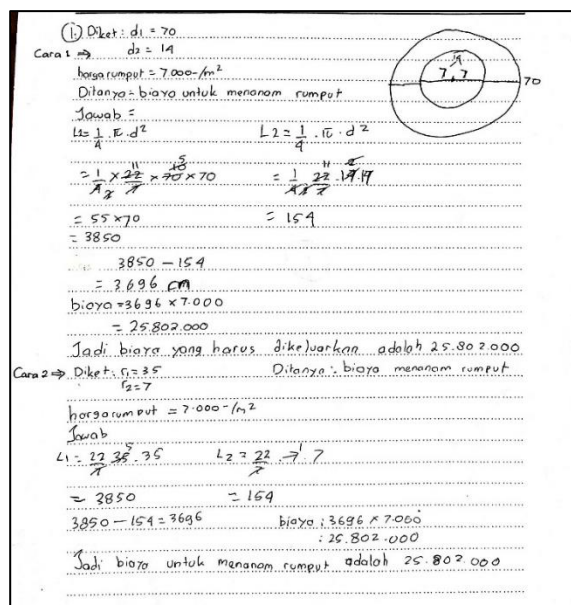 ① Diket : d1 = 70
Cara 1 ⇒ d2 = 14
harga rumput = 7.000-/m²
Ditanya = biaya untuk menanam rumput
Jawab =
L1 = 1/4 . π . d² L2 = 1/4 . π . d²
= 1/4 × 22/7 × 70 × 70 = 1/4 22/7 . 14.14
= 55 × 70 = 154
= 3850
3850 - 154
= 3696 cm
biaya = 3696 × 7.000
= 25.802.000
Jadi biaya yang harus dikeluarkan adalah 25.802.000
Cara 2 ⇒ Diket : r1 = 35 Ditanya : biaya menanam rumput
r2 = 7
harga rumput = 7.000-/m²
Jawab
L1 = 22/7 35 . 35 L2 = 22/7 . 7 . 7
= 3850 = 154
3850 - 154 = 3696 biaya : 3696 × 7.000
: 25.802.000
Jadi biaya untuk menanam rumput adalah 25.802.000
7 7
70